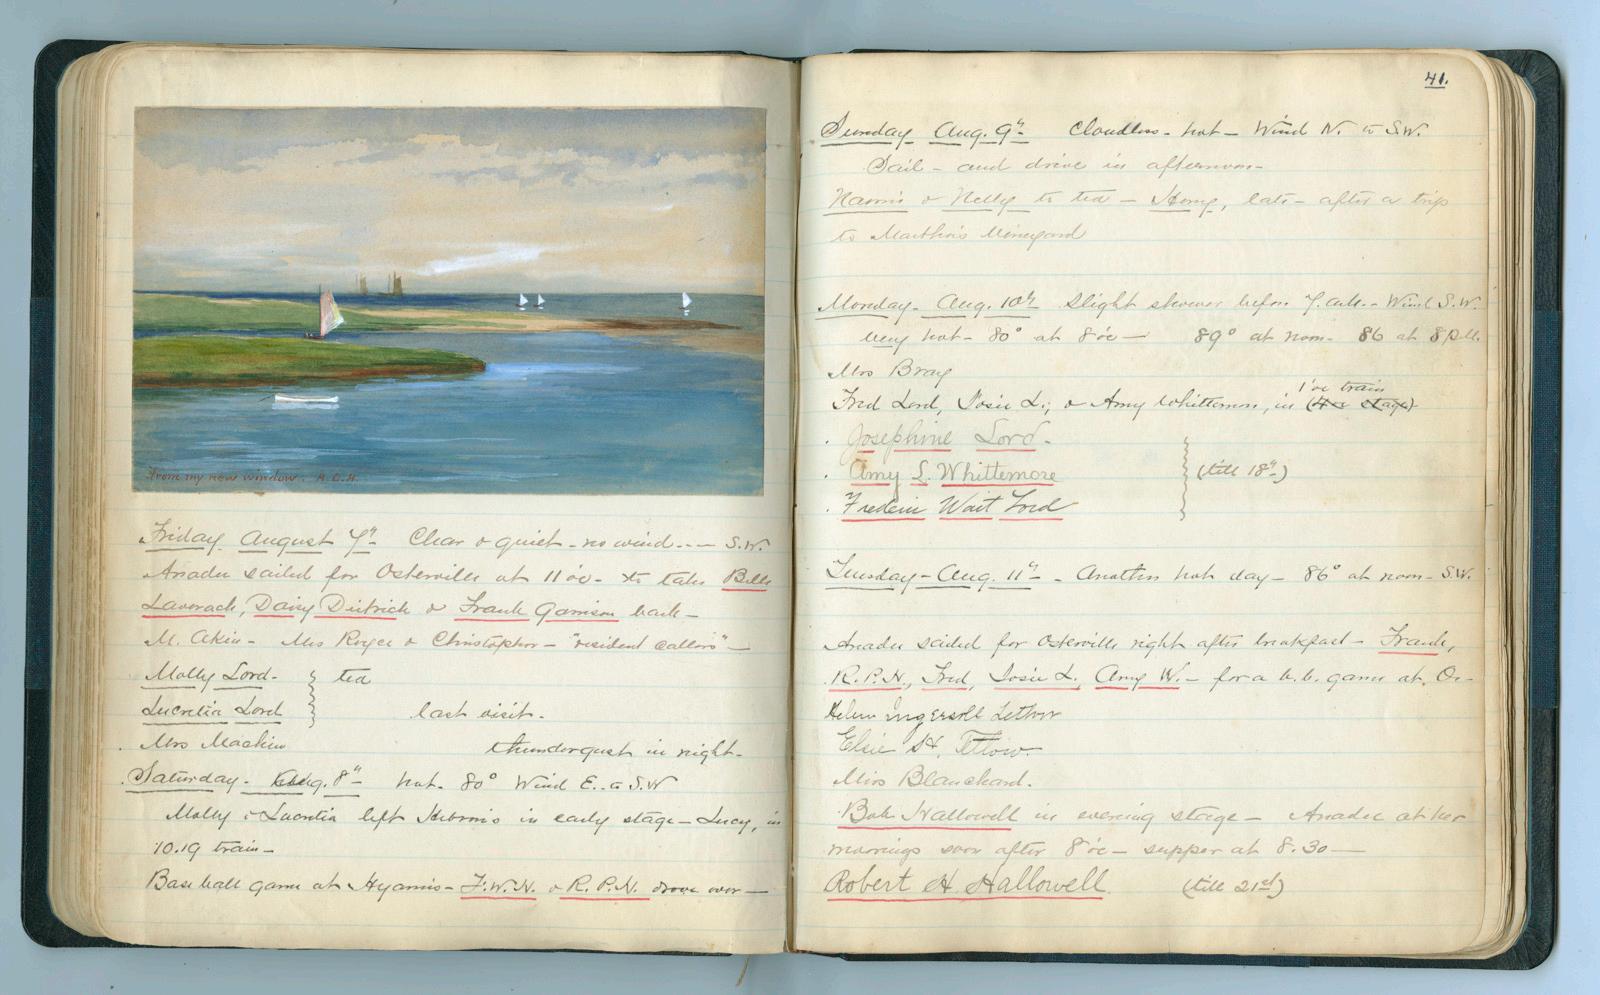 From my new window. A.C.H.
Friday August 7th Clear & quiet - no wind --- S.W.
Ariadne sailed for Osterville at 11 o'c - to take Belle
Laverack, Daisy Dietrick & Frank Garrison back -
M. Akin - Mrs Roger & Christopher - "resident callers" -
Molly Lord - } tea
Lucretia Lord last visit.
. Mrs Machin thundergust in night -
. Saturday - Aug. 8th hot - 80° Wind E. to S.W
Molly & Lucretia left in early stage - Lucy, in
10.19 train -
Base ball game at Hyannis - F.W.N. & R.P.N. drove over -
41.
Sunday Aug. 9th Cloudless - hot - Wind N. to S.W.
Sail - and drive in afternoon -
& Nelly to tea - Henry, late - after a trip
to Martha's Vineyard
Monday - Aug. 10th Slight shower before 7. a.m. - Wind S.W.
very hot - 80° at 8 o'c - 89° at noon - 86 at 8 p.m.
Mrs Bray
1 o'c train
Fred Lord, Josie L., & Amy Whittemore, in (4 o'c stage)
. Josephine Lord -
. Amy L. Whittemore (till 18th)
. Frederic Wait Lord
Tuesday - Aug. 11th - Another hot day - 86° at noon - S.W.
Ariadne sailed for Osterville right after breakfast - Frank,
R.P.N., Fred, Josie L., Amy W. - for a b.b. game at. O -
Helen Ingersoll
Elsie H.
Miss Blanchard.
Bob Hallowell in evening stage - Ariadne at her
moorings soon after 8 o'c - supper at 8.30 -
Robert H. Hallowell (till 21st)